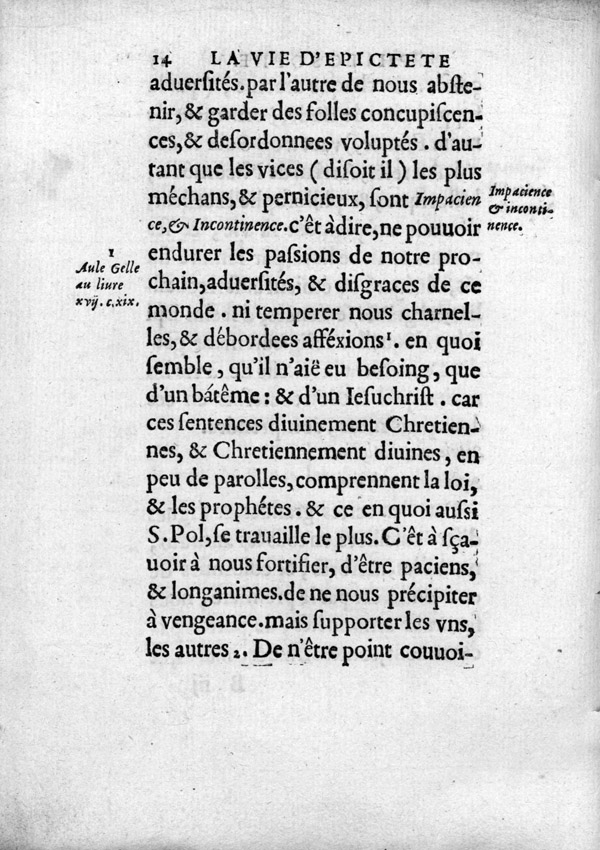 14 LA VIE D'EPICTETE
aduersités.par l'autre de nous abste-
nir,& garder des folles concupiscen-
ces,& desordonnees voluptés . d'au-
tant que les vices ( disoit il ) les plus
méchans,& pernicieux, sont Impacien
ce,& Incontinence.c'êt àdire,ne pouuoir
endurer les passions de notre pro-
chain,aduersités, & disgraces de ce
monde . ni temperer nous charnel-
les,& débordees afféxions¹. en quoi
semble , qu'il n'aië eu besoing, que
d'un bátême : & d'un Iesuchrist . car
ces sentences diuinement Chretien-
nes, & Chretiennement diuines, en
peu de parolles, comprennent la loi,
& les prophétes . & ce en quoi aussi
S. Pol, se trauaille le plus. C'êt à sça-
uoir à nous fortifier, d'être paciens,
& longanimes.de ne nous précipiter
à vengeance.mais supporter les vns,
les autres 2. De n'être point couuoi-
Impacience
& inconti-
nence.
1
Aule Gelle
au liure
xvij. c.xix.